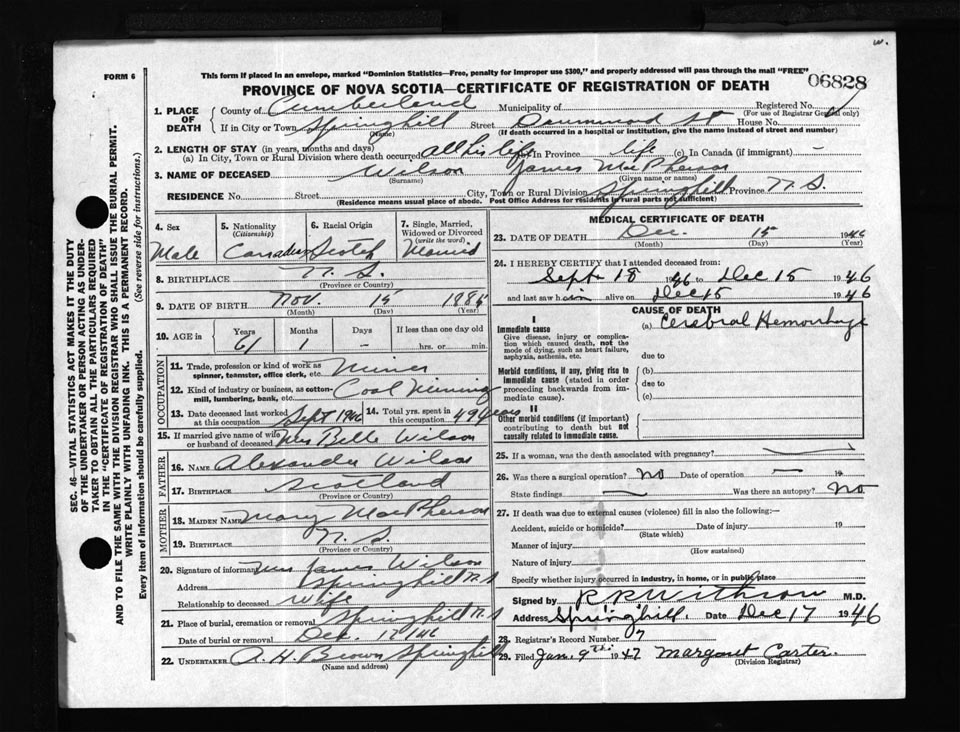 w.
FORM 6
This form if placed in an envelope, marked "Dominion Statistics—Free, penalty for improper use $300," and properly addressed will pass through the mail "FREE"
06828
PROVINCE OF NOVA SCOTIA—CERTIFICATE OF REGISTRATION OF DEATH
1. PLACE OF DEATH County of Cumberland Municipality of Registered No.
(For use of Registrar General only)
If in City or Town Springhill Street Drummond St House No.
(Name) (If death occurred in a hospital or institution, give the name instead of street and number)
2. LENGTH OF STAY (in years, months and days)
(a) In City, Town or Rural Division where death occurred all his life (b) In Province life (c) In Canada (if immigrant) —
3. NAME OF DECEASED Wilson James MacPherson
(Surname) (Given name or names)
RESIDENCE No. Street City, Town or Rural Division Springhill Province N.S.
(Residence means usual place of abode. Post Office Address for residents in rural parts not sufficient)
4. Sex 5. Nationality (Citizenship) 6. Racial Origin 7. Single, Married, Widowed or Divorced (write the word)
Male Canadian Scotch Married
8. BIRTHPLACE N.S.
(Province or Country)
9. DATE OF BIRTH Nov. 15 1885
(Month) (Day) (Year)
10. AGE in Years Months Days If less than one day old
61 1 – hrs. or min.
OCCUPATION
11. Trade, profession or kind of work as spinner, teamster, office clerk, etc. Miner
12. Kind of industry or business, as cotton-mill, lumbering, bank, etc. Coal Mining
13. Date deceased last worked at this occupation Sept 1946 14. Total yrs. spent in this occupation 49 years
15. If married give name of wife or husband of deceased Mrs Belle Wilson
FATHER
16. NAME Alexander Wilson
17. BIRTHPLACE Scotland
(Province or Country)
MOTHER
18. MAIDEN NAME Mary MacPherson
19. BIRTHPLACE N.S.
(Province or Country)
20. Signature of informant Mrs James Wilson
Address Springhill N.S
Relationship to deceased Wife
21. Place of burial, cremation or removal Springhill N.S
Date of burial or removal Dec. 17/46
22. UNDERTAKER A. H. Brown Springhill
(Name and address)
MEDICAL CERTIFICATE OF DEATH
23. DATE OF DEATH Dec. 15 1946
(Month) (Day) (Year)
24. I HEREBY CERTIFY that I attended deceased from:
Sept 18 1946 to Dec 15 1946
and last saw him alive on Dec 15 1946
CAUSE OF DEATH
I
Immediate cause (a) Cerebral Hemorrhage
Give disease, injury or complication which caused death, not the mode of dying, such as heart failure, asphyxia, asthenia, etc.
due to
Morbid conditions, if any, giving rise to immediate cause (stated in order proceeding backwards from immediate cause).
(b)
due to
(c)
II
Other morbid conditions (if important) contributing to death but not causally related to immediate cause.
25. If a woman, was the death associated with pregnancy? —
26. Was there a surgical operation? No Date of operation — 19
State findings — Was there an autopsy? No
27. If death was due to external causes (violence) fill in also the following:—
Accident, suicide or homicide? Date of injury 19
(State which)
Manner of injury
(How sustained)
Nature of injury
Specify whether injury occurred in industry, in home, or in public place
Signed by R R Withrow M.D.
Address Springhill. Date Dec 17 1946
28. Registrar's Record Number 7
29. Filed Jan. 9th 1947 Margaret Carter.
(Division Registrar)
SEC. 46—VITAL STATISTICS ACT MAKES IT THE DUTY
OF THE UNDERTAKER OR PERSON ACTING AS UNDER-
TAKER TO OBTAIN ALL THE PARTICULARS REQUIRED
IN THE "CERTIFICATE OF REGISTRATION OF DEATH"
AND TO FILE THE SAME WITH THE DIVISION REGISTRAR WHO SHALL ISSUE THE BURIAL PERMIT.
WRITE PLAINLY WITH UNFADING INK. THIS IS A PERMANENT RECORD.
Every item of information should be carefully supplied. (See reverse side for instructions.)